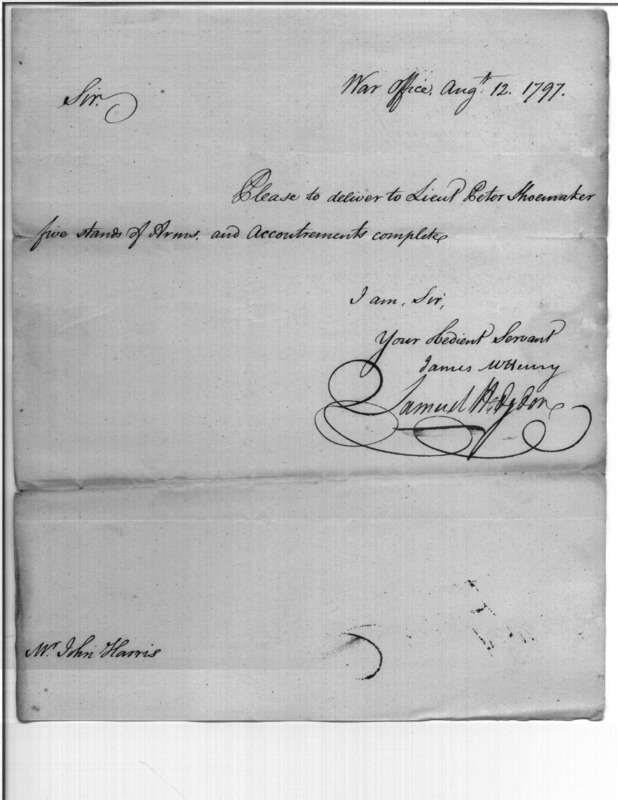 War Office, Augt. 12. 1797.
Sir.
Please to deliver to Lieut Peter Shoemaker
five stands of Arms. and Accoutrements complete
I am, Sir,
Your Obedient Servant
James McHenry
Samuel Hodgdon
Mr John Harris